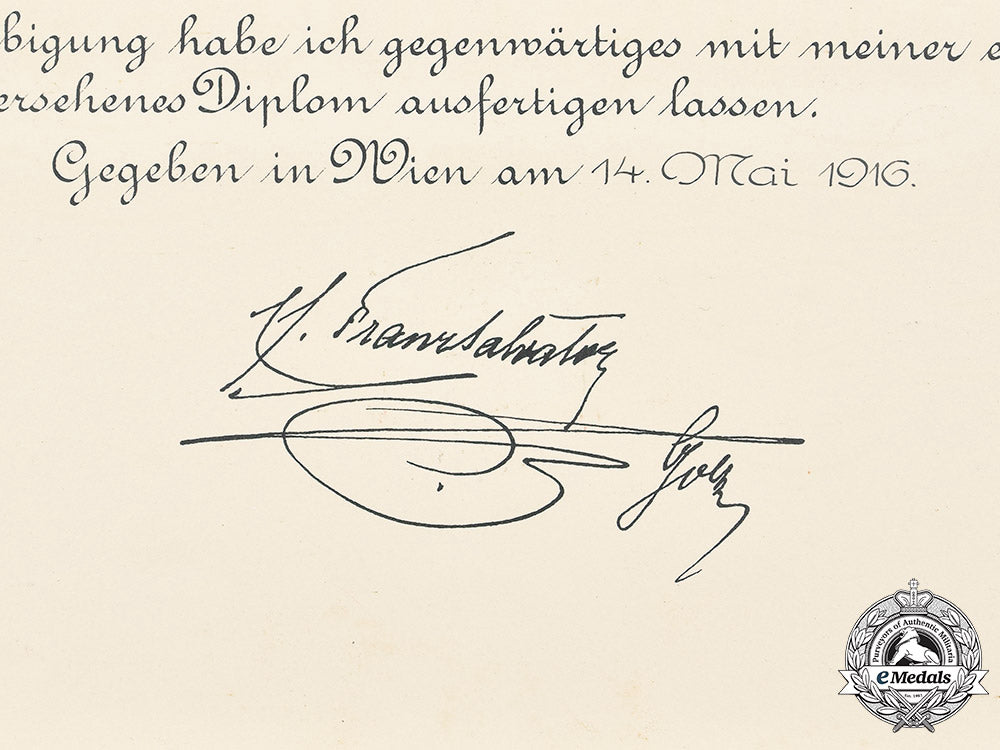 bigung habe ich gegenwärtiges mit meiner e
ersehenes Diplom ausfertigen lassen.
Gegeben in Wien am 14. Mai 1916.
Franz Salvator
Purveyors of Authentic Militaria
eMedals